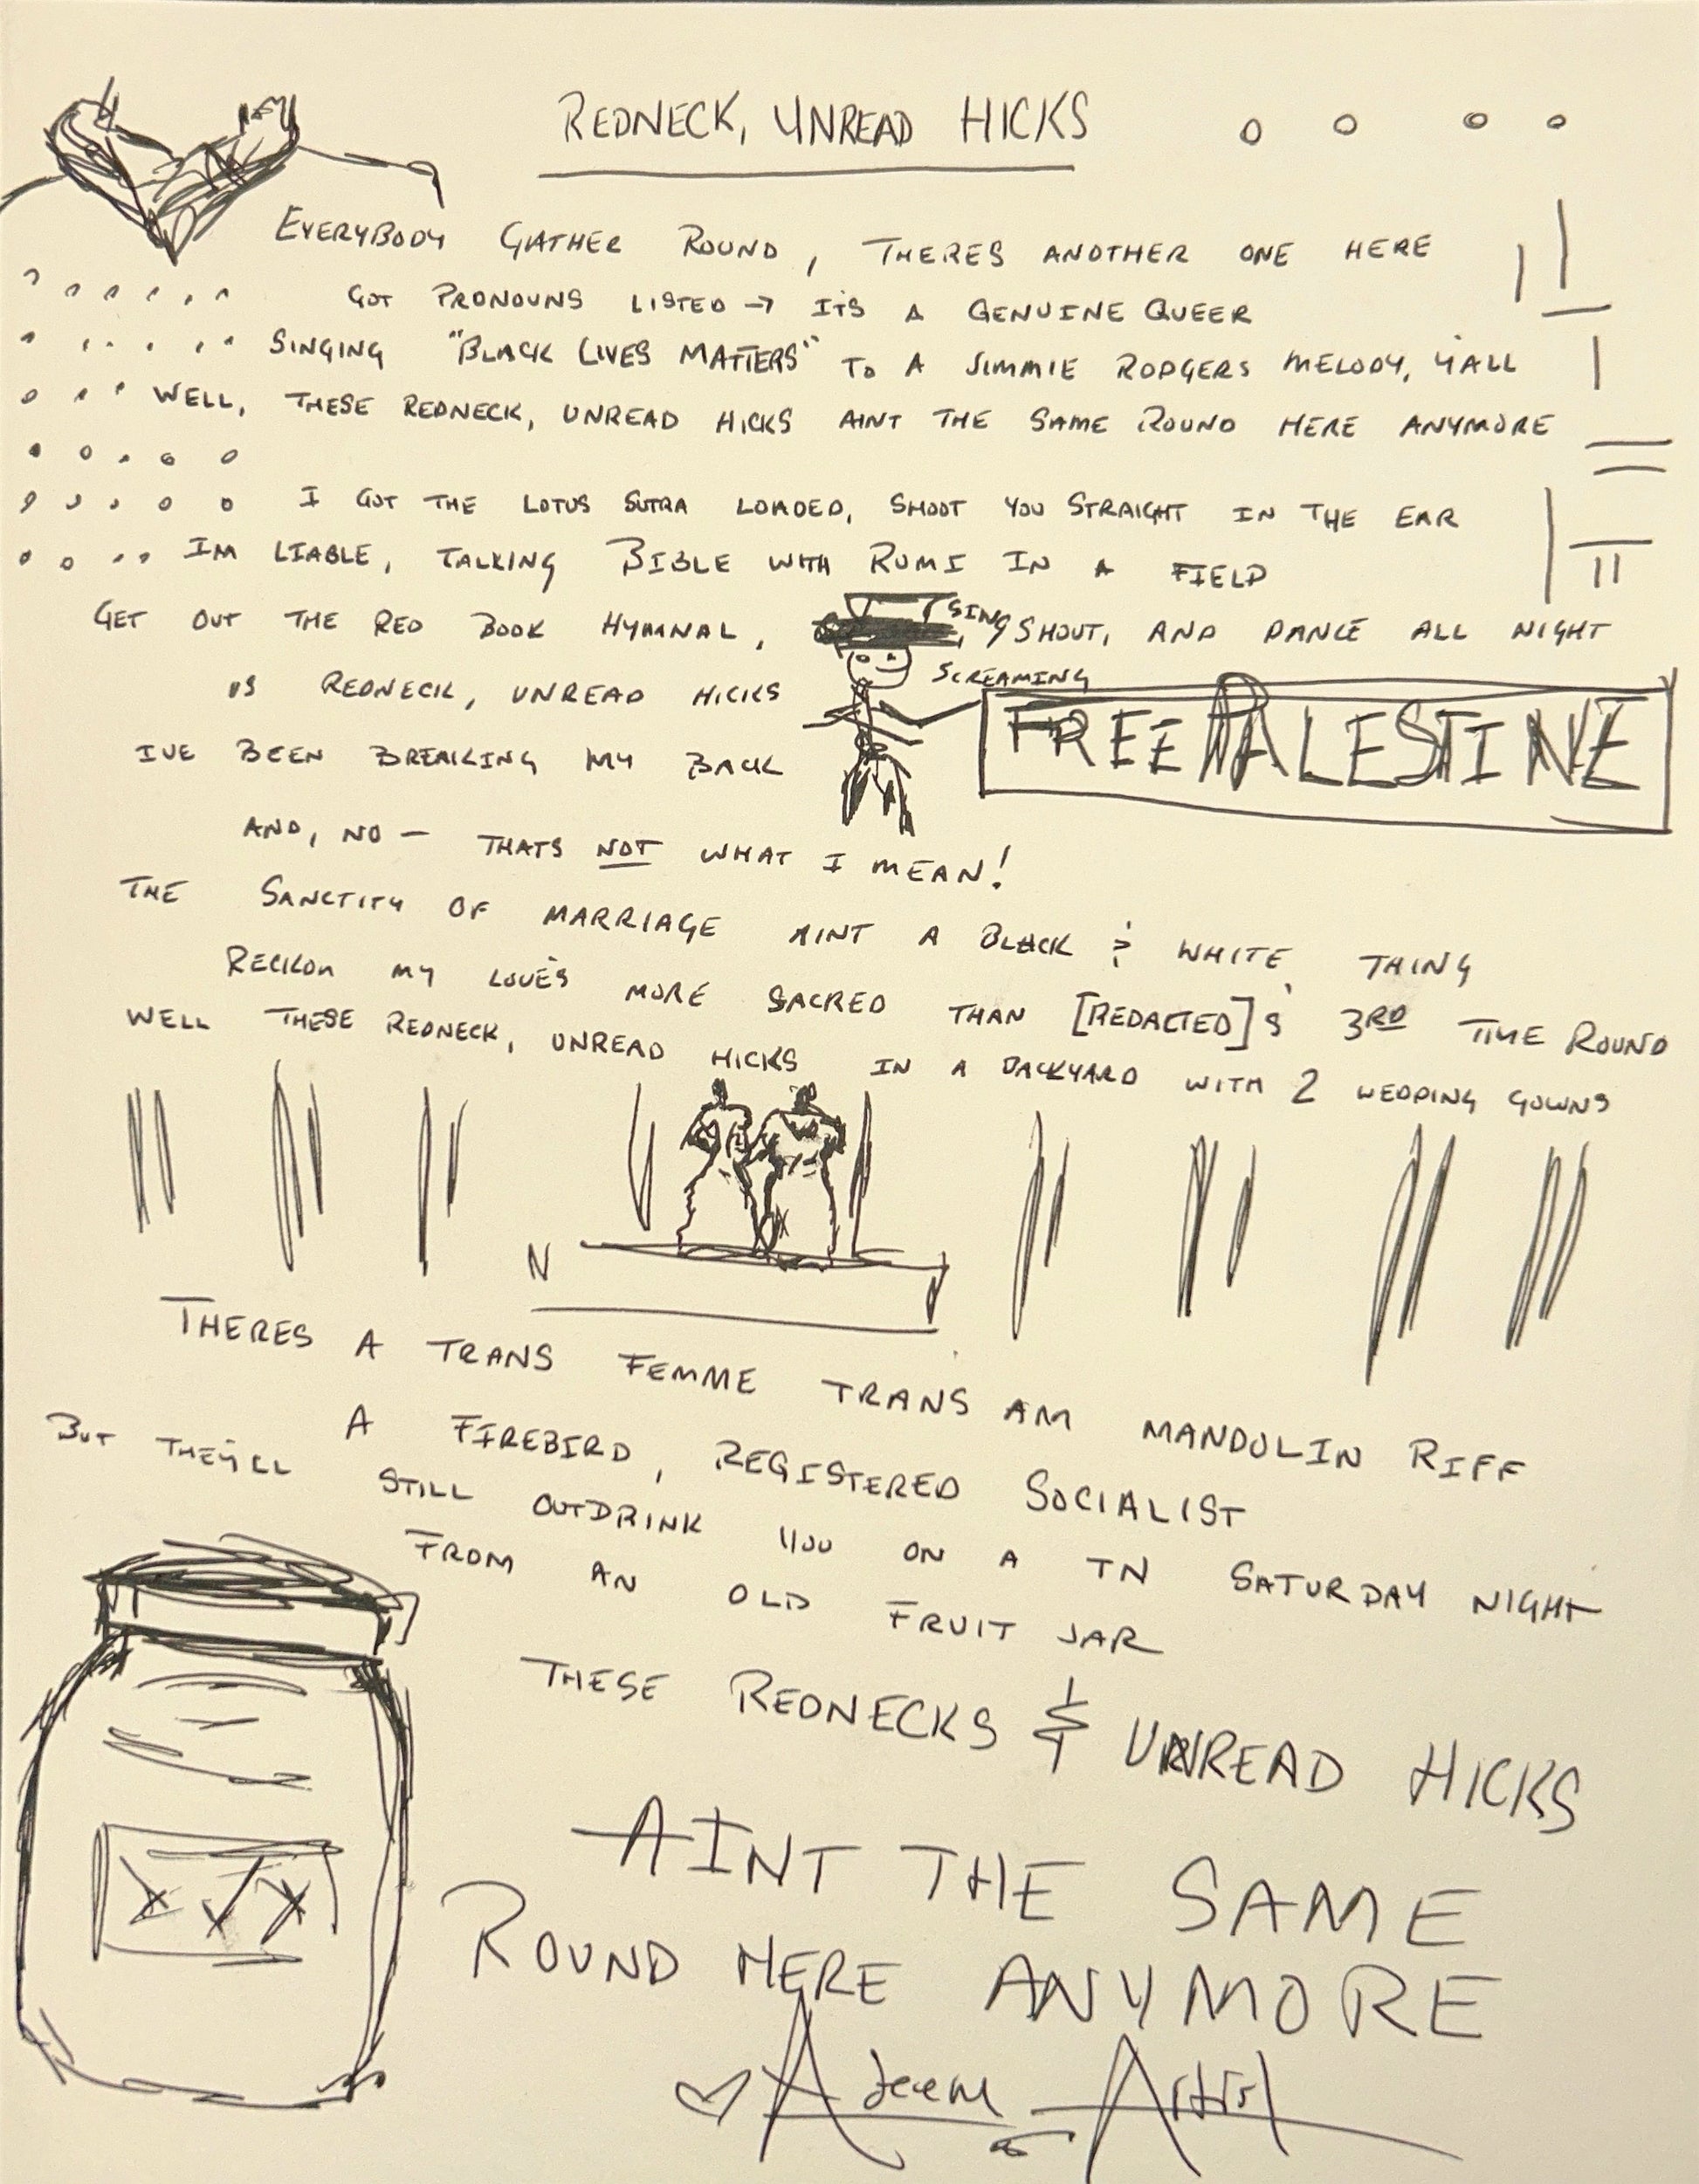 REDNECK, UNREAD HICKS
EVERYBODY GATHER ROUND, THERES ANOTHER ONE HERE
GOT PRONOUNS LISTED → IT'S A GENUINE QUEER
SINGING "BLACK LIVES MATTERS" TO A JIMMIE RODGERS MELODY, Y'ALL
WELL, THESE REDNECK, UNREAD HICKS AINT THE SAME ROUND HERE ANYMORE
I GOT THE LOTUS SUTRA LOADED, SHOOT YOU STRAIGHT IN THE EAR
IM LIABLE, TALKING BIBLE WITH RUMI IN A FIELD
GET OUT THE RED BOOK HYMNAL, SING, SHOUT, AND DANCE ALL NIGHT
US REDNECK, UNREAD HICKS SCREAMING
FREE PALESTINE
IVE BEEN BREAKING MY BACK
AND, NO — THATS NOT WHAT I MEAN!
THE SANCTITY OF MARRIAGE AINT A BLACK & WHITE THING
RECKON MY LOVE'S MORE SACRED THAN [REDACTED]'S 3RD TIME ROUND
WELL THESE REDNECK, UNREAD HICKS IN A BACKYARD WITH 2 WEDDING GOWNS
N
THERES A TRANS FEMME TRANS AM MANDOLIN RIFF
A FIREBIRD, REGISTERED SOCIALIST
BUT THEY'LL STILL OUTDRINK YOU ON A TN SATURDAY NIGHT
FROM AN OLD FRUIT JAR
THESE REDNECKS & UNREAD HICKS
AINT THE SAME
ROUND HERE ANYMORE
XXX
Adeem Artist